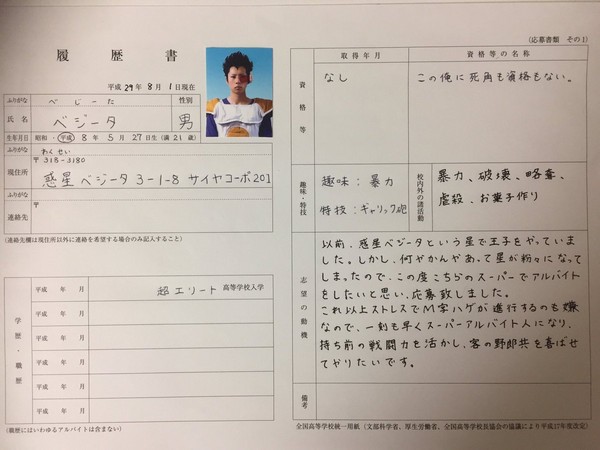 履歴書
平成 29年 8月 1日現在
ふりがな べじーた 性別
氏名 ベジータ 男
生年月日 昭和・平成 8年 5月 27日生(満 21歳)
ふりがな わくせい
〒318-3180
現住所 惑星ベジータ3-1-8 サイヤコーポ201
ふりがな
〒
連絡先
(連絡先欄は現住所以外に連絡を希望する場合のみ記入すること)
学歴・職歴
平成 年 月 超エリート 高等学校入学
平成 年 月
平成 年 月
平成 年 月
平成 年 月
平成 年 月
(履歴にはいわゆるアルバイトは含まない)
(応募書類 その1)
資格等
取得年月 資格等の名称
なし この俺に死角も資格もない。
趣味・特技
趣味:暴力
特技:ギャリック砲
校内外の諸活動
暴力、破壊、略奪、
虐殺、お菓子作り
志望の動機
以前、惑星ベジータという星で王子をやっていま
した。しかし、何やかんやあって星が粉々になって
しまったので、この度こちらのスーパーでアルバイト
をしたいと思い、応募致しました。
これ以上ストレスでM字ハゲが進行するのも嫌
なので、一刻も早くスーパーアルバイト人になり、
持ち前の戦闘力を活かし、客の野郎共を喜ばせ
てやりたいです。
備考
全国高等学校統一用紙(文部科学省、厚生労働省、全国高等学校長協会の協議により平成17年度改定)